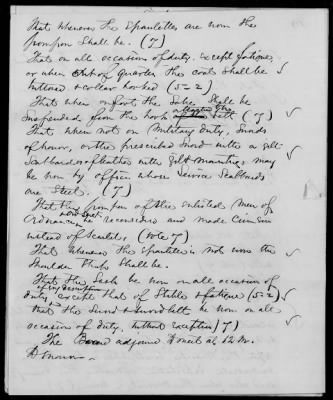 That whenever the Epaulettes are worn the
pompon shall be. (7)
That on all occasion of duty, except fatigue,
or when out of Quarters the coat shall be
buttoned & collar hooked (5=2)
That when on foot the Sabre shall be
suspended from the hook attached to the belt (7)
That when not on Military duty, swords
of honor, or the prescribed sword with a gilt
Scabbard or of leather with gilt mountings may
be worn by officers whose service Scabbards
are Steel. (7)
That the pompon of the enlisted men of
Ordnance be reconsidered and made Crimson
instead of Scarlet. (vote 7)
That whenever the epaulette is not worn the
Shoulder Strap shall be.
That the Sash be worn on all occasion of
duty of any description except that of Stable & fatigue (5=2)
that the Sword & Sword belt be worn on all
occasion of duty, without exception (7)
The Board adjourned until at 12 M.